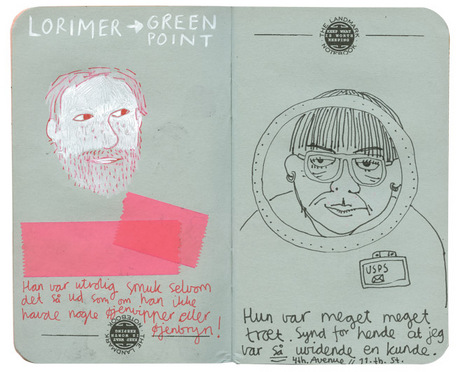 LORIMER → GREEN
POINT
Han var utrolig smuk selvom
det så ud som om han ikke
havde nogle øjenvipper eller
øjenbryn!
THE LANDMARK
NOTEBOOK
KEEP WHAT
IS WORTH
KEEPING
THE LANDMARK
NOTEBOOK
KEEP WHAT
IS WORTH
KEEPING
USPS
Hun var meget meget
træt. Synd for hende at jeg
var så uvidende en kunde.
4th. Avenue // 11. th. st.